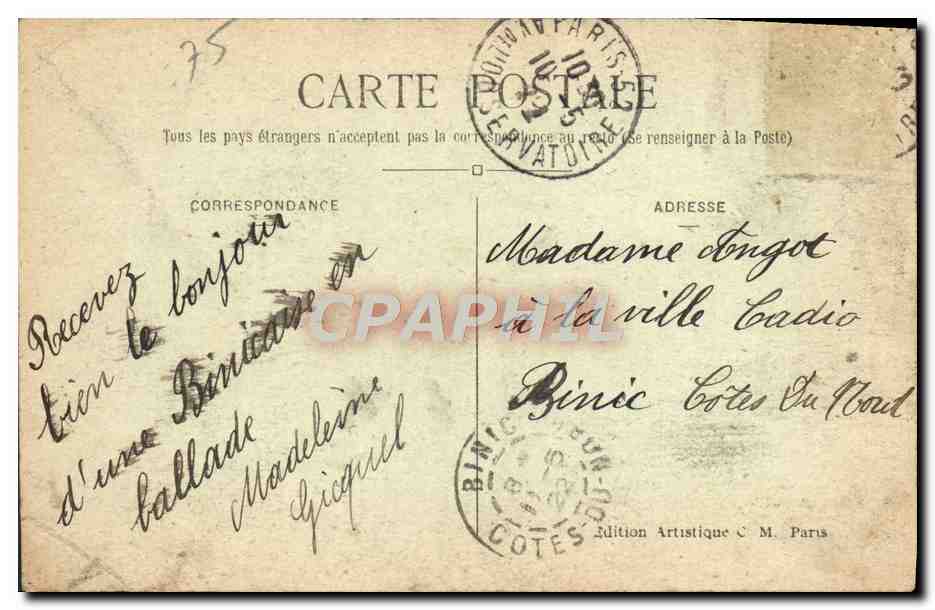 75
CARTE POSTALE
Tous les pays étrangers n'acceptent pas la correspondance au recto (Se renseigner à la Poste)
CORRESPONDANCE
Recevez
bien le bonjour
d'une Binicaise en
ballade
Madeleine
Gicquel
ADRESSE
Madame Angot
à la ville Cadio
Binic Côtes Du Nord
Edition Artistique C M. Paris
PARIS
CONSERVATOIRE
BINIC
COTES-DU-NORD
CPAPHIL